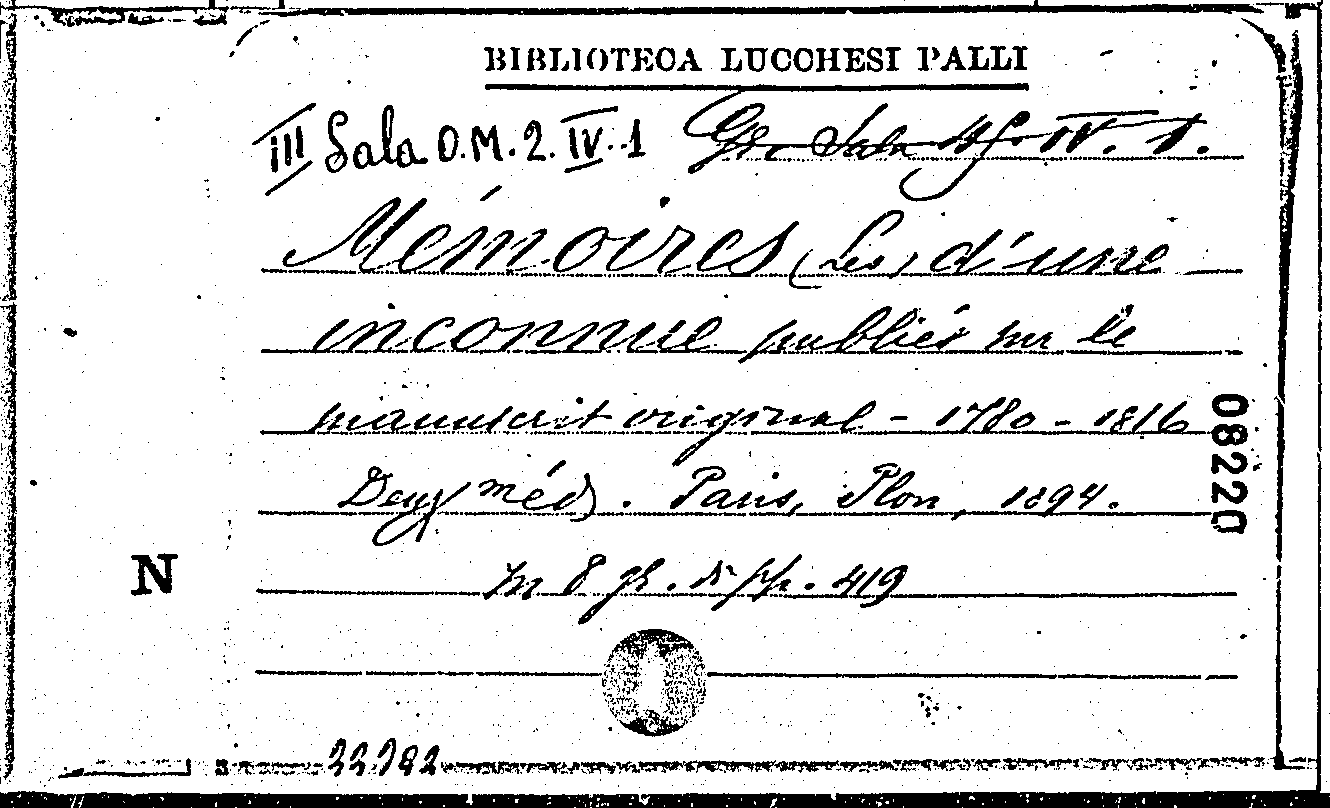 BIBLIOTECA LUCCHESI PALLI
III Sala O.M.2.IV.1 Gr. Sala IV. 1.
Mémoires (Les) d'une
inconnue publiés sur le
manuscrit original - 1780 - 1816
Deux méd. Paris, Plon, 1894.
In 8 gr. di pp. 419
08220
N